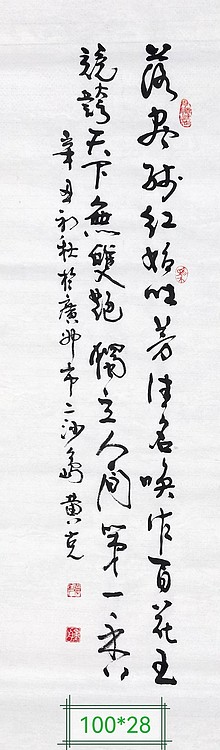 落尽残红始吐芳佳名唤作百花王
競誇天下無雙艷獨立人间第一香
辛丑初秋於廣州市二沙島黄克
100*28